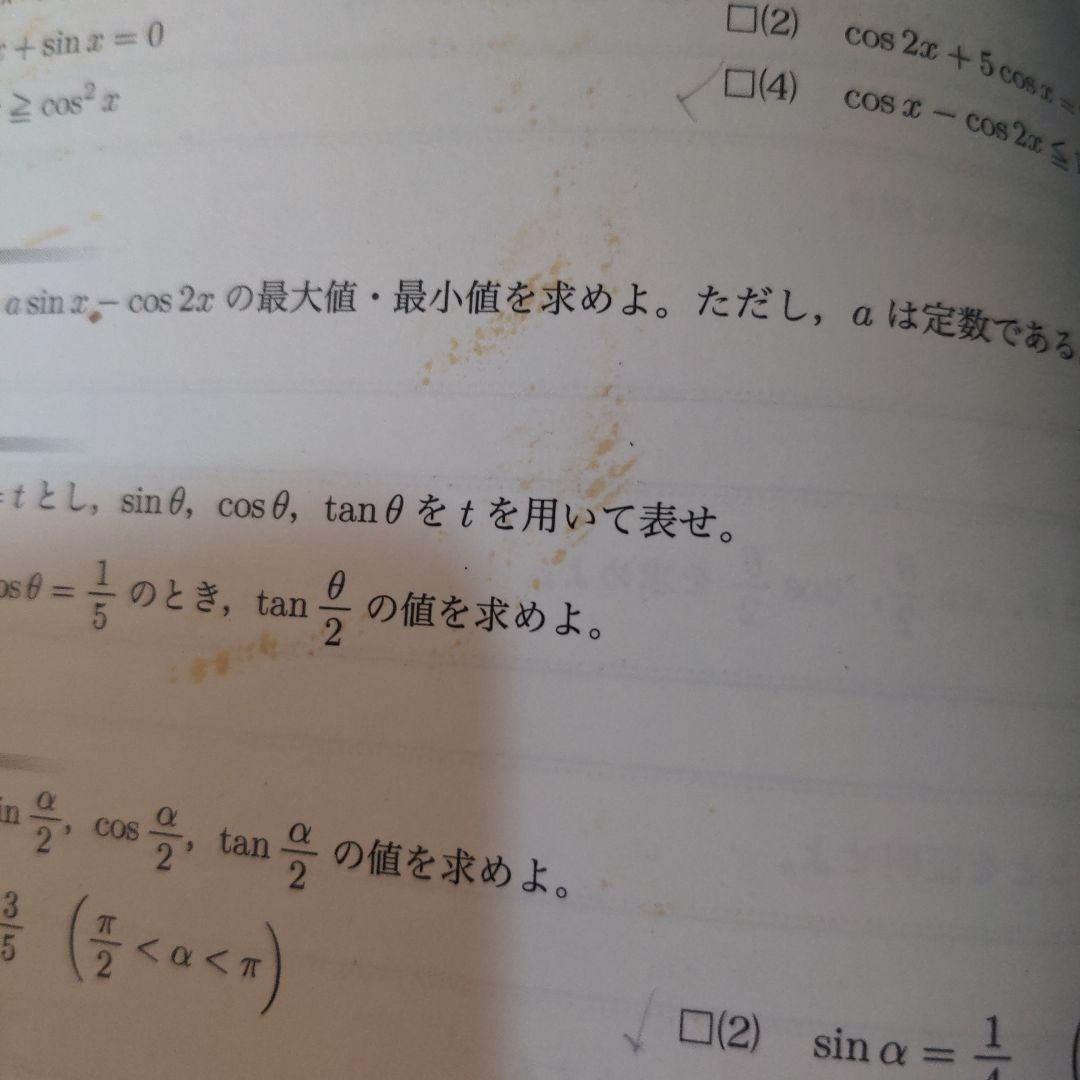 + sin x = 0
□(2) cos 2x + 5 cos x =
≧ cos² x
□(4) cos x − cos 2x ≦
a sin x − cos 2x の最大値・最小値を求めよ。ただし, a は定数である
= t とし, sin θ, cos θ, tan θ を t を用いて表せ。
os θ = 1/5 のとき, tan θ/2 の値を求めよ。
in α/2, cos α/2, tan α/2 の値を求めよ。
3/5 (π/2 < α < π)
□(2) sin α = 1/4